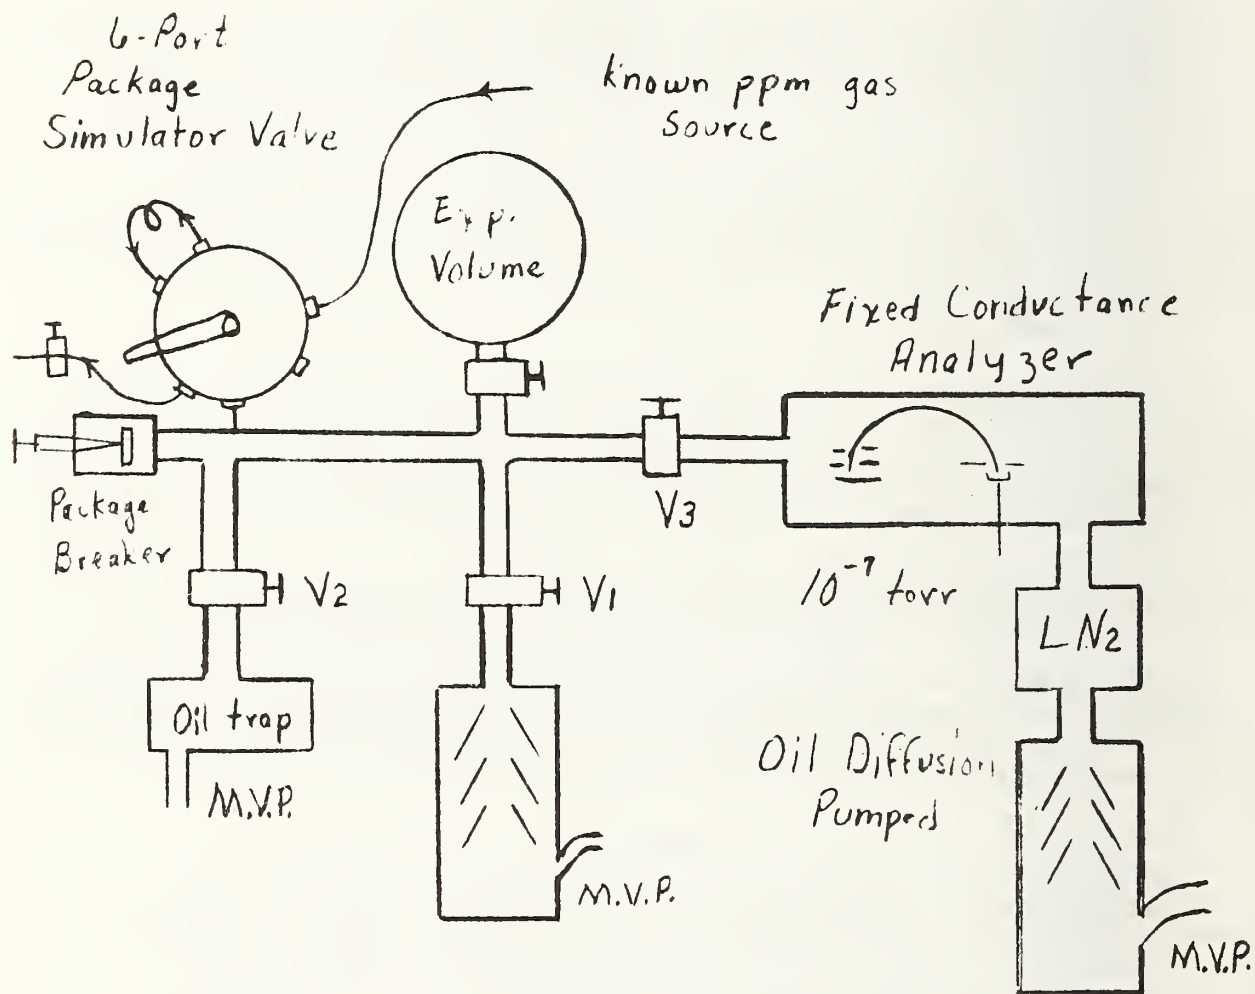 6-Port
Package
Simulator Valve
Known ppm gas
Source
Exp.
Volume
Fixed Conductance
Analyzer
Package
Breaker
V2
V1
V3
10⁻⁷ torr
LN2
Oil trap
M.V.P.
M.V.P.
Oil Diffusion
Pumped
M.V.P.